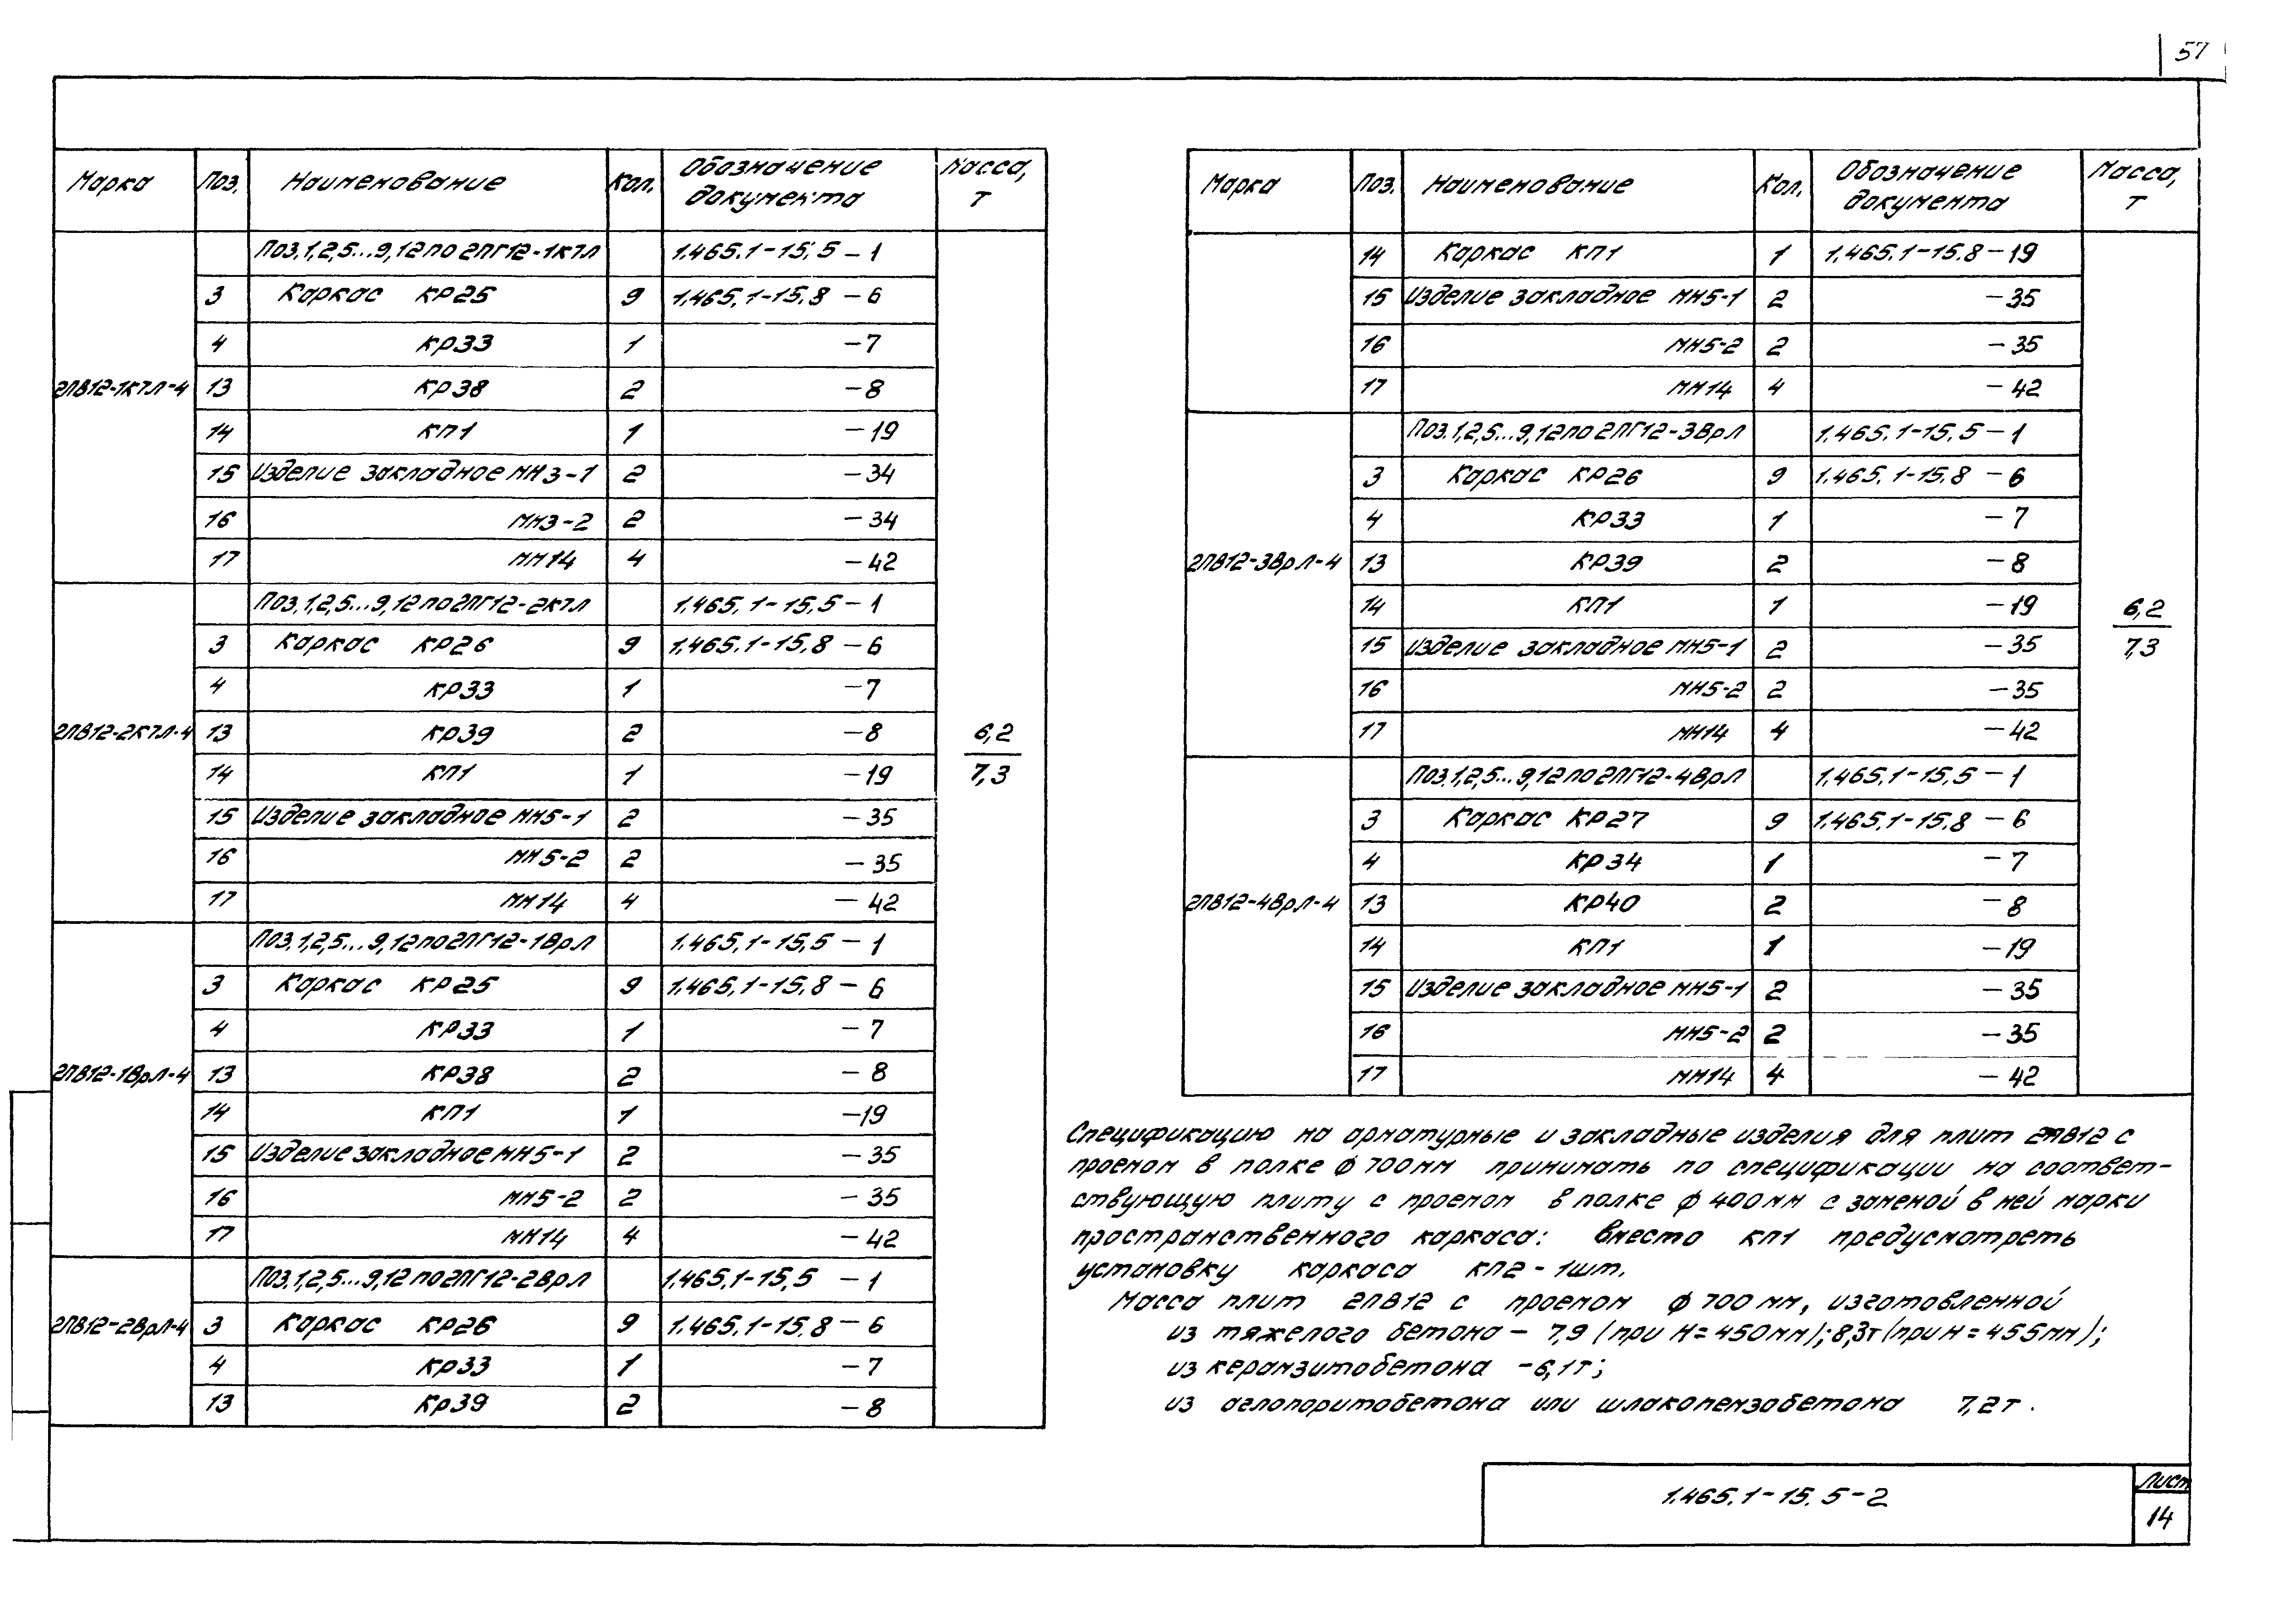 57
Марка Поз. Наименование Кол. Обозначение документа Масса, т
Поз.1,2,5...9,12 по 2ПГ12-1К7Л 1.465.1-15.5 -1
3 Каркас КР25 9 1.465.1-15.8 -6
4 КР33 1 -7
2ПВ12-1К7Л-4 13 КР38 2 -8
14 КП1 1 -19
15 Изделие закладное МН3-1 2 -34
16 МН3-2 2 -34
17 МН14 4 -42
Поз.1,2,5...9,12 по 2ПГ12-2К7Л 1.465.1-15.5 -1
3 Каркас КР26 9 1.465.1-15.8 -6
4 КР33 1 -7
2ПВ12-2К7Л-4 13 КР39 2 -8 6,2
14 КП1 1 -19 7,3
15 Изделие закладное МН5-1 2 -35
16 МН5-2 2 -35
17 МН14 4 -42
Поз.1,2,5...9,12 по 2ПГ12-1ВрЛ 1.465.1-15.5 -1
3 Каркас КР25 9 1.465.1-15.8 -6
4 КР33 1 -7
2ПВ12-1ВрЛ-4 13 КР38 2 -8
14 КП1 1 -19
15 Изделие закладное МН5-1 2 -35
16 МН5-2 2 -35
17 МН14 4 -42
Поз.1,2,5...9,12 по 2ПГ12-2ВрЛ 1.465.1-15.5 -1
2ПВ12-2ВрЛ-4 3 Каркас КР26 9 1.465.1-15.8 -6
4 КР33 1 -7
13 КР39 2 -8
Марка Поз. Наименование Кол. Обозначение документа Масса, т
14 Каркас КП1 1 1.465.1-15.8-19
15 Изделие закладное МН5-1 2 -35
16 МН5-2 2 -35
17 МН14 4 -42
Поз.1,2,5...9,12 по 2ПГ12-3ВрЛ 1.465.1-15.5-1
3 Каркас КР26 9 1.465.1-15.8 -6
4 КР33 1 -7
2ПВ12-3ВрЛ-4 13 КР39 2 -8
14 КП1 1 -19 6,2
15 Изделие закладное МН5-1 2 -35 7,3
16 МН5-2 2 -35
17 МН14 4 -42
Поз.1,2,5...9,12 по 2ПГ12-4ВрЛ 1.465.1-15.5-1
3 Каркас КР27 9 1.465.1-15.8 -6
4 КР34 1 -7
2ПВ12-4ВрЛ-4 13 КР40 2 -8
14 КП1 1 -19
15 Изделие закладное МН5-1 2 -35
16 МН5-2 2 -35
17 МН14 4 -42
Спецификацию на арматурные и закладные изделия для плит 2ПВ12 с
проемом в полке ф 700мм принимать по спецификации на соответ-
ствующую плиту с проемом в полке ф 400мм с заменой в ней марки
пространственного каркаса: вместо КП1 предусмотреть
установку каркаса КП2 - 1шт.
Масса плит 2ПВ12 с проемом ф 700 мм, изготовленной
из тяжелого бетона - 7,9 (при Н=450мм); 8,3т (при Н=455мм);
из керамзитобетона -6,1т;
из аглопоритобетона или шлакопемзобетона 7,2т.
1.465.1-15.5-2
Лист
14